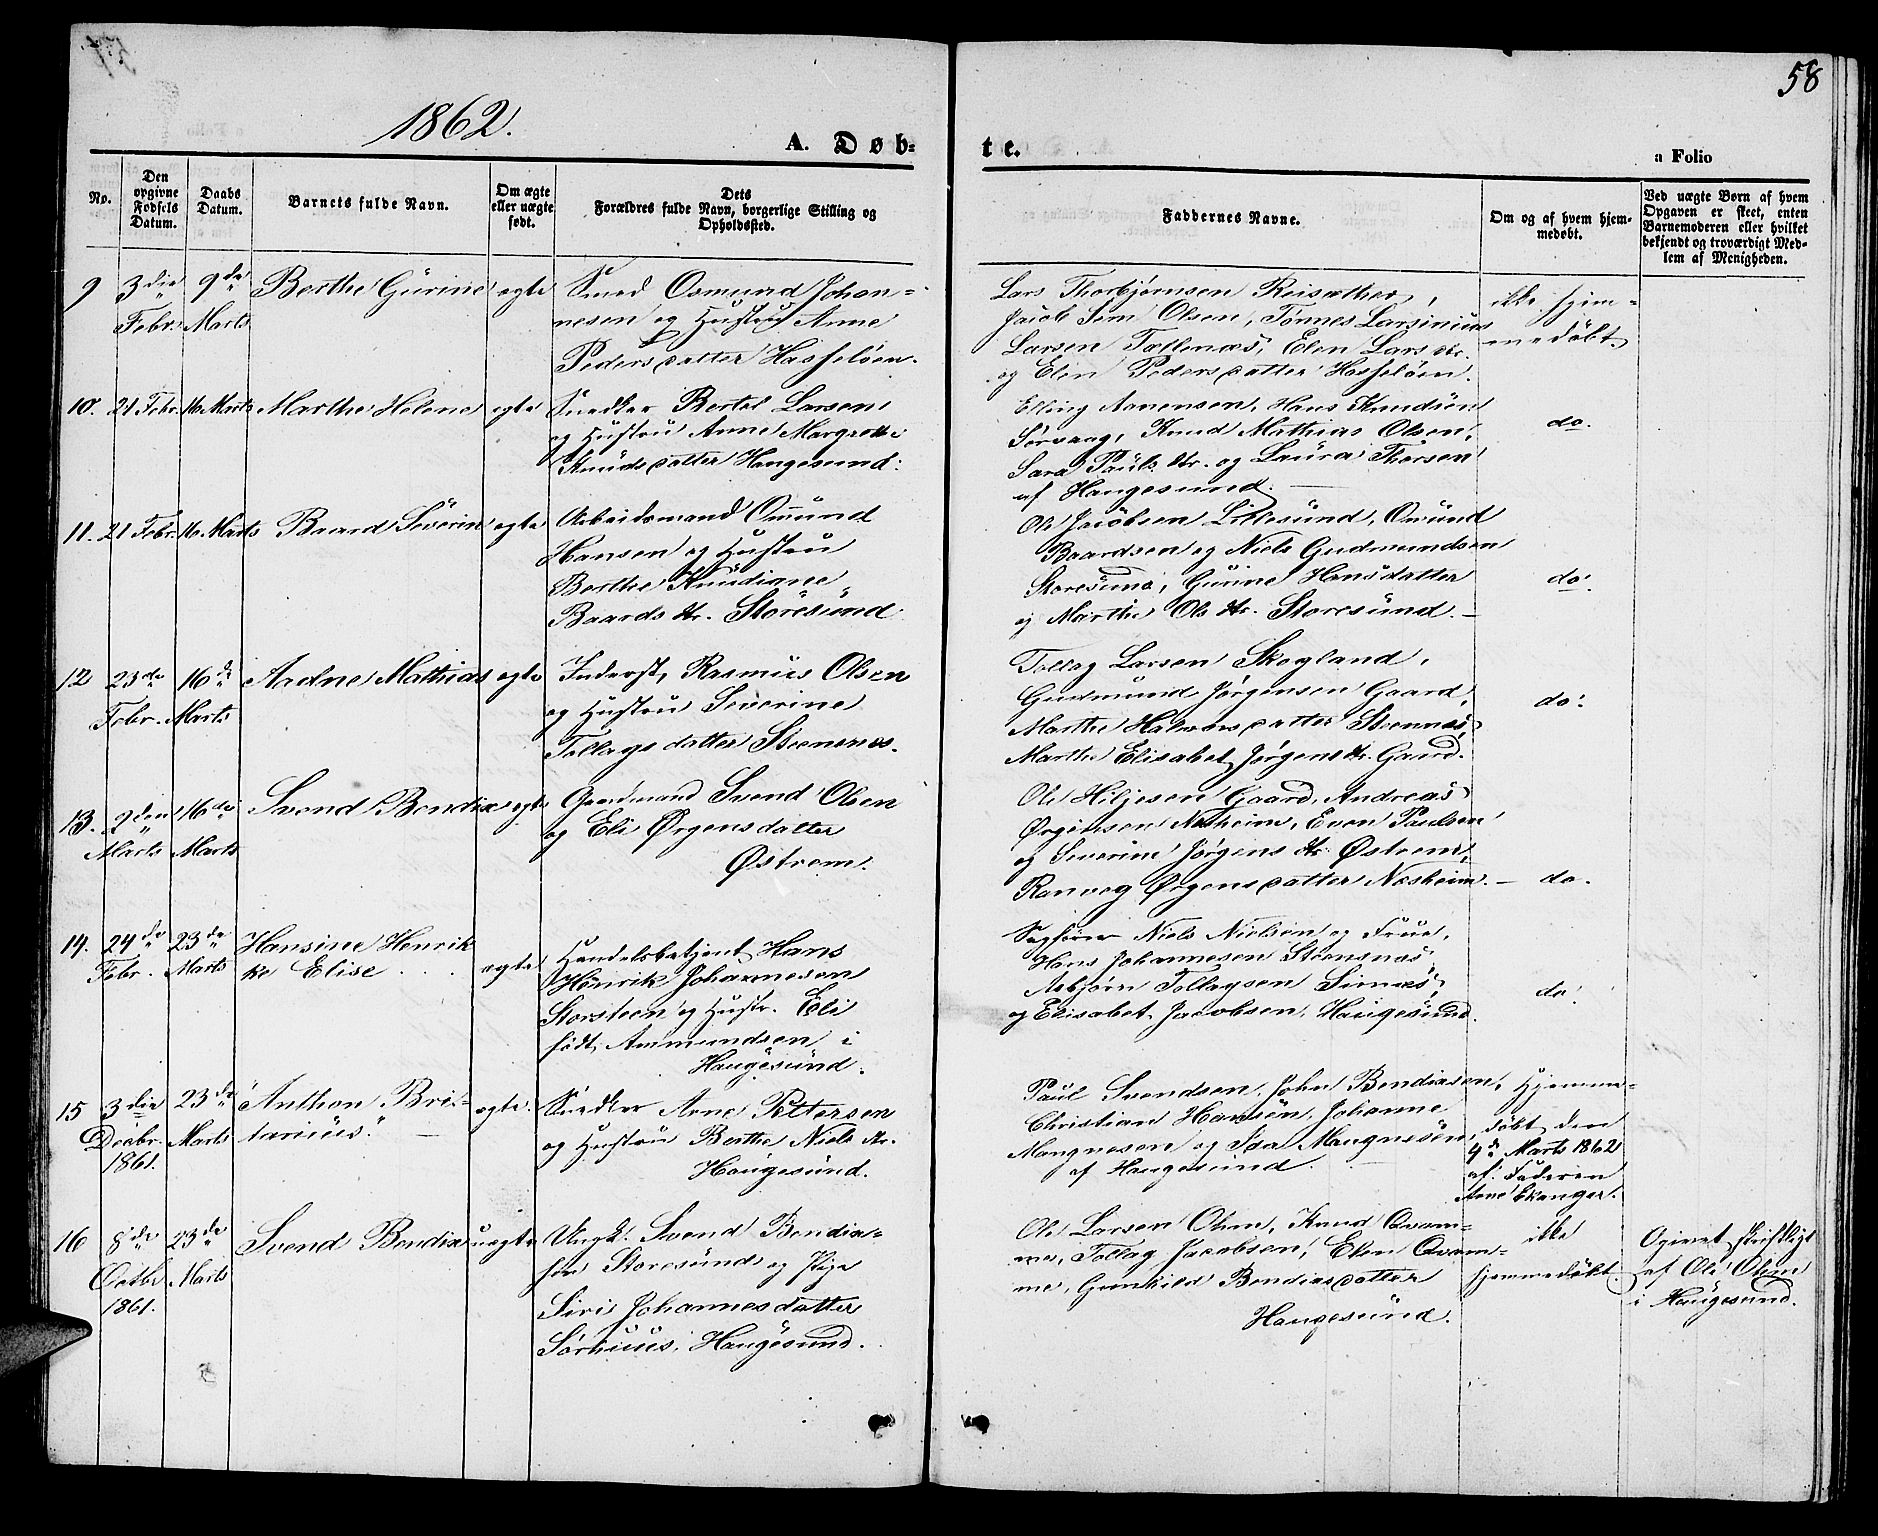 58
1862.
A. Døb-
te.
a Folio
No.
Den
opgivne
Fødsels
Datum.
Daabs
Datum.
Barnets fulde Navn.
Om ægte
eller uægte
født.
Dets
Forældres fulde Navn, borgerlige Stilling og
Opholdssted.
Faddernes Navne.
Om og af hvem hjem-
medøbt.
Ved uægte Børn af hvem
Opgaven er skeet, enten
Barnemoderen eller hvilket
bekjendt og troværdigt Med-
lem af Menigheden.
9
3die
Febr.
9de
Marts
Berthe Gürine
egte
Smed Osmund Johan-
nesen og Hustru Anne
Pedersdatter Hasseløen.
Lars Thorbjørnsen
Jacob Sem Olsen, Tønnes Larsinius
Larsen Tællenæs, Elen Larsdtr.
og Elen Pedersdatter Hasseløen.
ikke hjem-
medøbt.
10.
21 Febr.
16 Marts
Marthe Helene
egte
Snedker Bertel Larsen
og Hustru Anne Margrethe
Knudsdatter Haugesund.
Elling Aanensen, Hans Knudsen
Sørvaag, Knud Mathias Olsen,
Sara Paulsdtr. og Laüra Thorsen
af Haugesund.
do.
11.
21 Febr.
16 Marts
Baard Severin
egte
Arbeidsmand Omünd
Hansen og Hustru
Berthe Knudiane
Baardsdtr. Storesünd
Ole Jacobsen Lillesünd, Omünd
Baardsen og Niels Gudmundsen
Storesünd, Gürine Hansdatter
og Marthe Olsdtr. Storesünd.
do.
12
23de
Febr.
16de
Marts
Aadne Mathias
egte
Inderst, Rasmus Olsen
og Hustru Severine
Tollagsdatter Steensnæs.
Tollag Larsen Skogland,
Gudmund Jørgensen Gaard,
Marthe Halvorsdatter Steensnæs,
Marthe Elisabet Jørgensdtr. Gaard.
do.
13.
2den
Marts
16de
Marts
Svend Bendix
egte
Gaardmand Svend Olsen
og Eli Ørgensdatter
Østrem.
Ole Hiljesen Gaard, Andreas
Ørgensen Næsheim, Even Paulsen
og Severine Jørgensdtr Østrem,
Ranveg Ørgensdatter Næsheim.
do.
14.
24de
Febr.
23de
Marts
Hansine Henrik
ke Elise
egte
Handelsbetjent Hans
Henrik Johannesen
Storsteen og Hustr. Eli
født Ammundsen i
Haugesünd.
Sagfører Niels Nielsen og Frue,
Hans Johannesen Steensnæs,
Asbjørn Tollagsen Simæs,
og Elisabet Jacobsen, Haugesünd.
do.
15
3die
Decbr.
1861.
23de
Marts
Anthon Bri-
tanius.
egte.
Snedker Arne Pettersen
og Hustru Berthe Nielsdtr.
Haugesünd.
Paul Svendsen, John Bendixsen,
Christian Hansen, Johanne
Mangnesen og Ida Mangnesen
af Haugesund.
Hjemme-
døbt den
4de Marts 1862
af Faderen
Arne Ekanger.
16
8de
Octbr
1861.
23de
Marts
Svend Bendix
uegte
Ungk. Svend Bendix-
sen Storesünd og Pige
Siri Johannesdatter
Haugesund.
Ole Larsen Ohm, Knud Qvam-
me, Tollag Jacobsen, Elen Qvam-
me, Gunhild Bendixsdatter
Haugesünd.
ikke
hjemmedøbt.
Ogivet skriftligt
af Ole Olsen
i Haugesund.